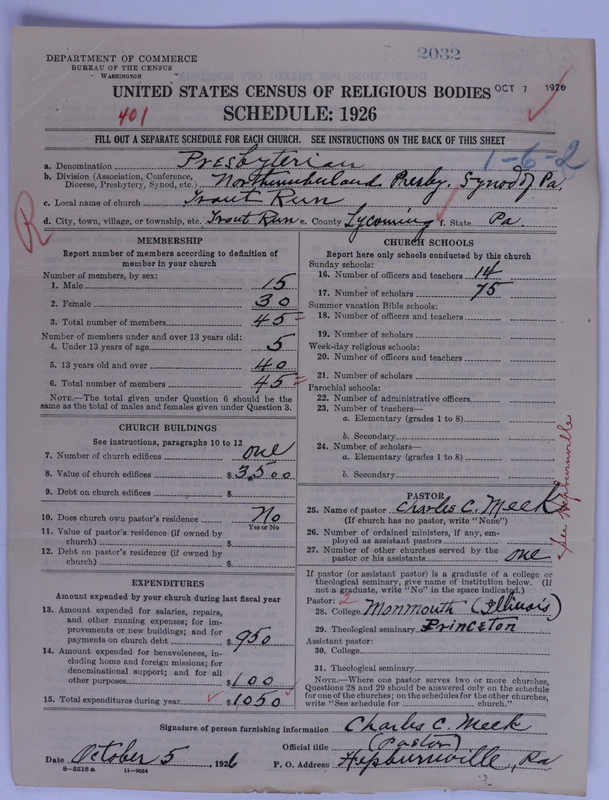 2032
DEPARTMENT OF COMMERCE
BUREAU OF THE CENSUS
WASHINGTON
UNITED STATES CENSUS OF RELIGIOUS BODIES
OCT 7 1926
401
SCHEDULE: 1926
FILL OUT A SEPARATE SCHEDULE FOR EACH CHURCH. SEE INSTRUCTIONS ON THE BACK OF THIS SHEET
1-6-2
a. Denomination Presbyterian
b. Division (Association, Conference, Diocese, Presbytery, Synod, etc.) Northumberland Presby. Synod of Pa.
c. Local name of church Trout Run
d. City, town, village, or township, etc. Trout Run e. County Lycoming f. State Pa.
R
MEMBERSHIP
Report number of members according to definition of
member in your church
Number of members, by sex:
1. Male 15
2. Female 30
3. Total number of members 45
Number of members under and over 13 years old:
4. Under 13 years of age 5
5. 13 years old and over 40
6. Total number of members 45
NOTE.—The total given under Question 6 should be
same as the total of males and females given under Question 3.
CHURCH BUILDINGS
See instructions, paragraphs 10 to 12
7. Number of church edifices one
8. Value of church edifices $3500
9. Debt on church edifices $
10. Does church own pastor's residence No
Yes or No
11. Value of pastor's residence (if owned by
church) $
12. Debt on pastor's residence (if owned by
church) $
EXPENDITURES
Amount expended by your church during last fiscal year
13. Amount expended for salaries, repairs,
and other running expenses; for im-
provements or new buildings; and for
payments on church debt $950
14. Amount expended for benevolences, in-
cluding home and foreign missions; for
denominational support; and for all
other purposes $100
15. Total expenditures during year $1050
CHURCH SCHOOLS
Report here only schools conducted by this church
Sunday schools:
16. Number of officers and teachers 14
17. Number of scholars 75
Summer vacation Bible schools:
18. Number of officers and teachers
19. Number of scholars
Week-day religious schools:
20. Number of officers and teachers
21. Number of scholars
Parochial schools:
22. Number of administrative officers
23. Number of teachers—
a. Elementary (grades 1 to 8)
b. Secondary
24. Number of scholars—
a. Elementary (grades 1 to 8)
b. Secondary
PASTOR
25. Name of pastor Charles C. Meek
(If church has no pastor, write "None")
26. Number of ordained ministers, if any, em-
ployed as assistant pastors
27. Number of other churches served by the
pastor or his assistants one
See Hepburnville
If pastor (or assistant pastor) is a graduate of a college or
theological seminary, give name of institution below. (If
not a graduate, write "No" in the space indicated.)
Pastor: 2
28. College Monmouth (Illinois)
29. Theological seminary Princeton
Assistant pastor:
30. College
31. Theological seminary
NOTE.—Where one pastor serves two or more churches,
Questions 28 and 29 should be answered only on the schedule
for one of the churches; on the schedules for the other churches,
write "See schedule for church."
Signature of person furnishing information Charles C. Meek
Official title (Pastor)
Date October 5, 1926 P. O. Address Hepburnville, Pa
8-5518 a 11-9554